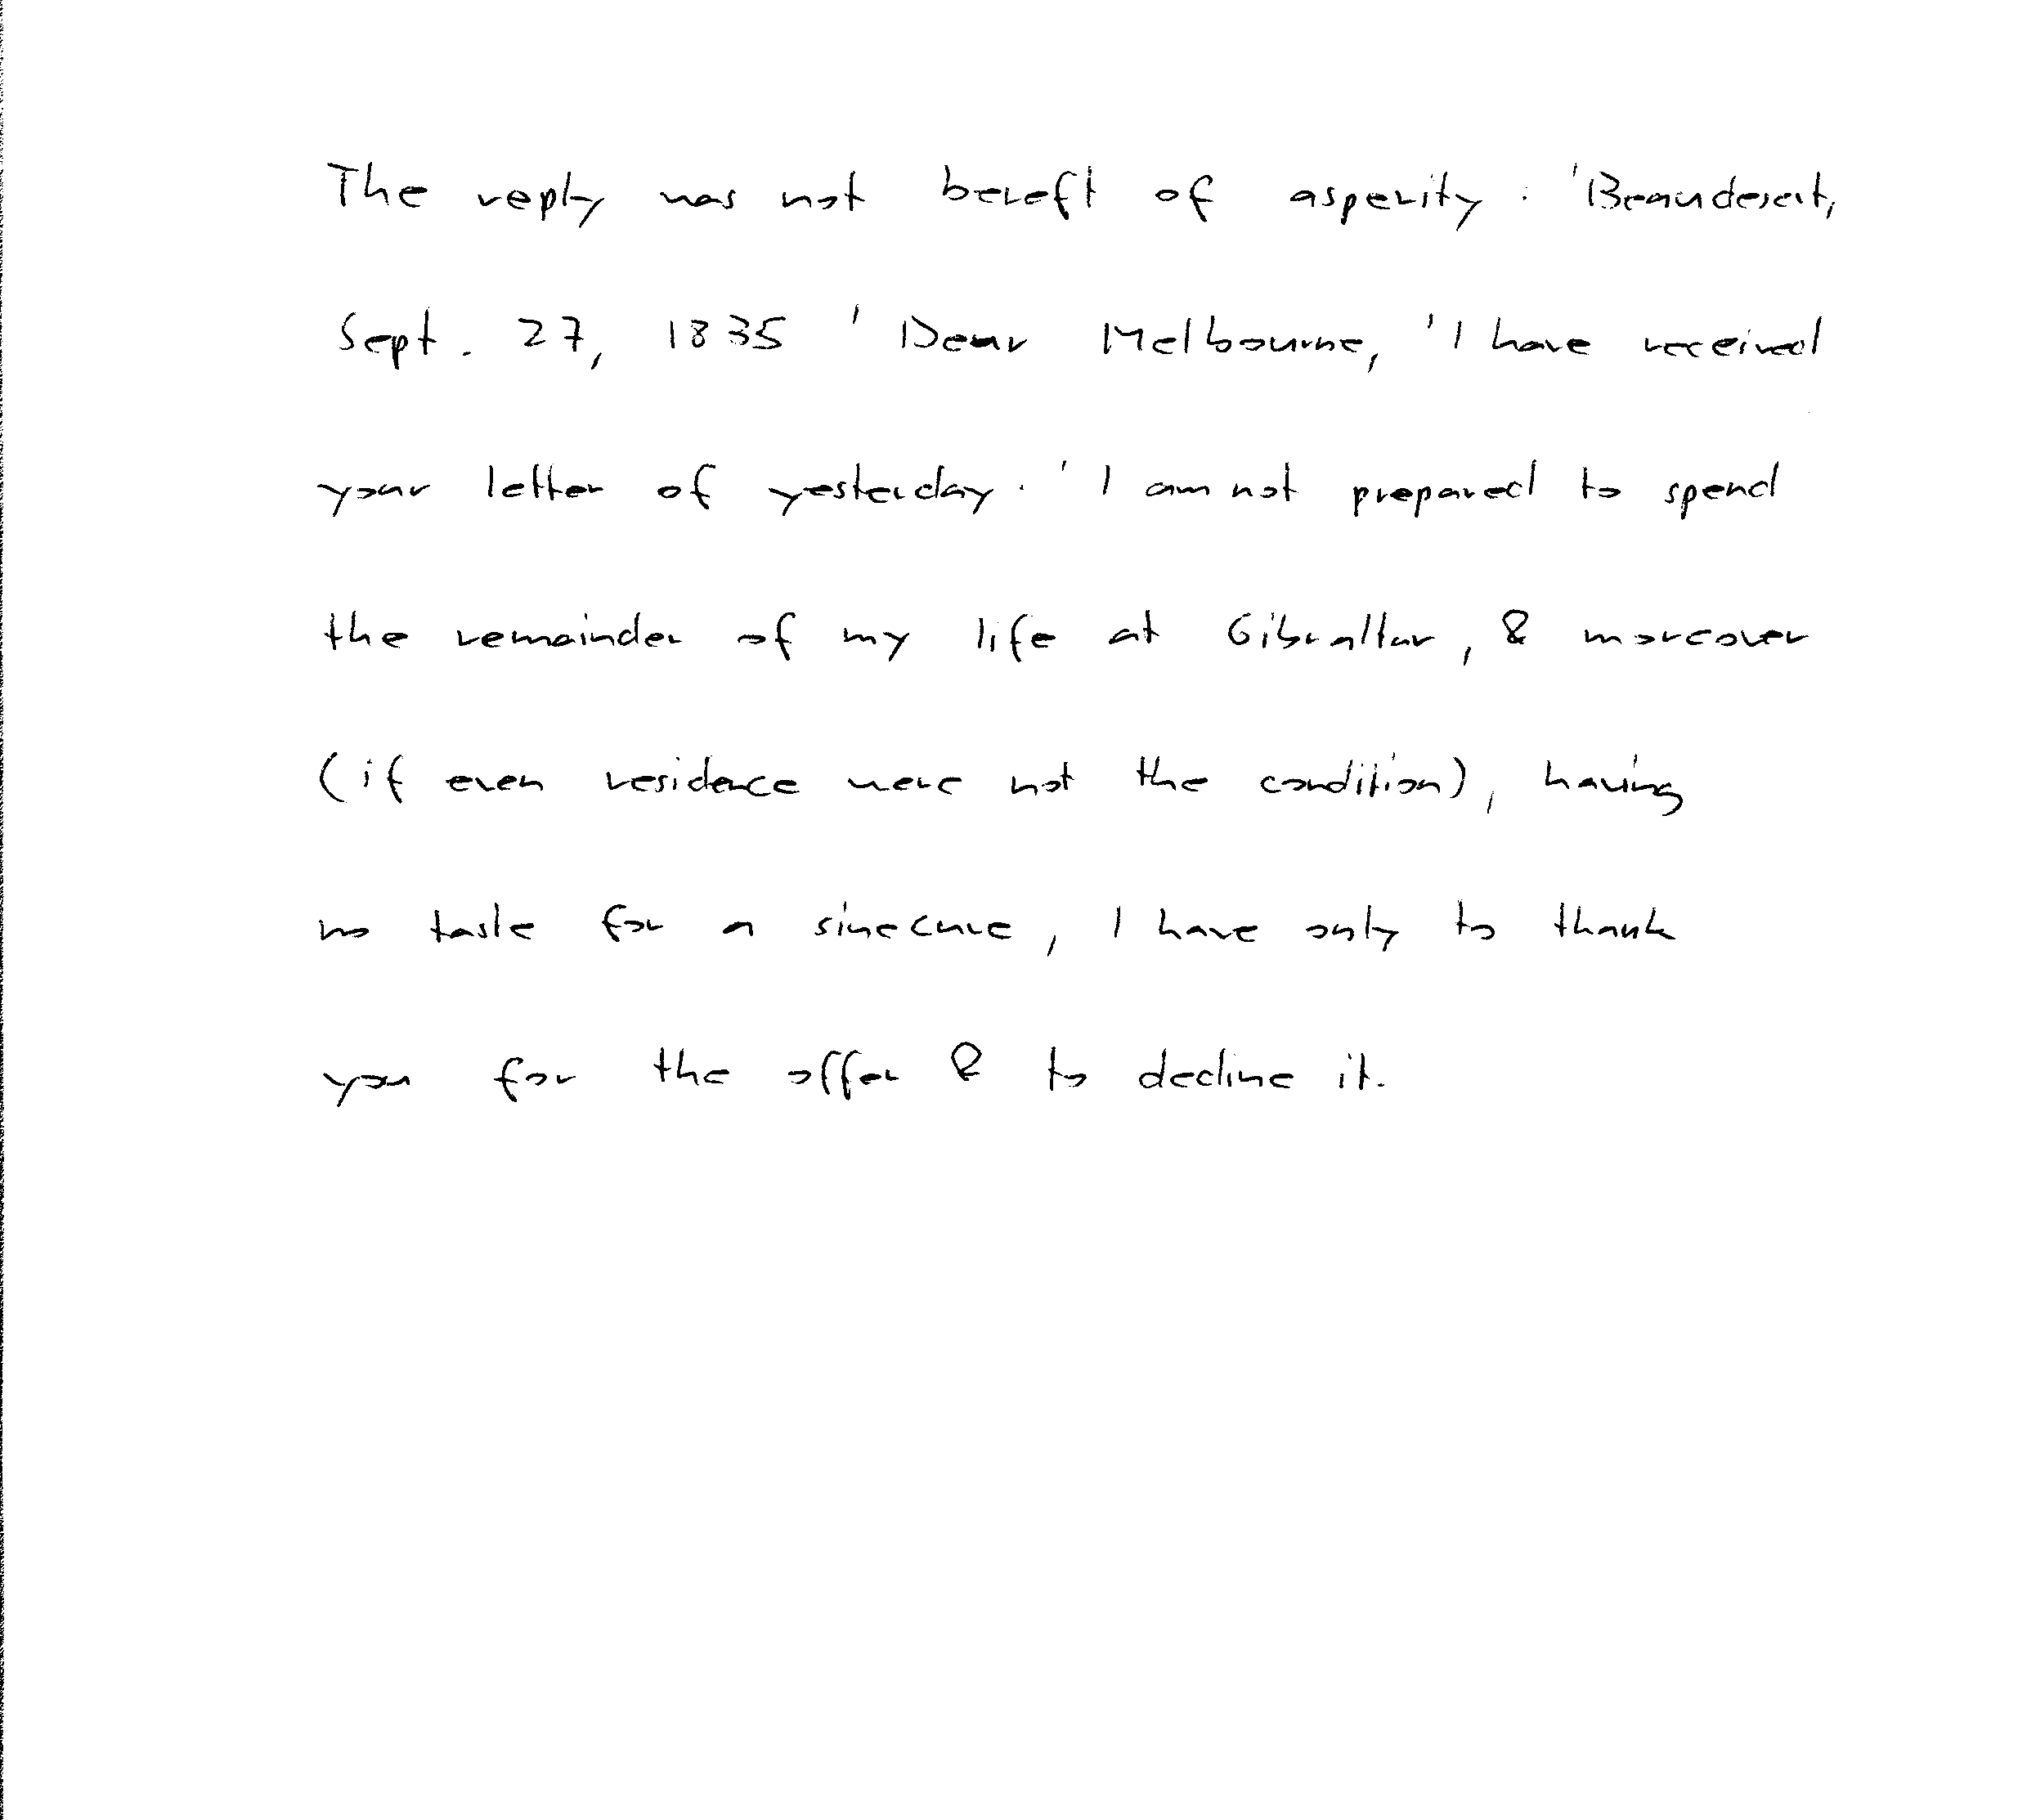 The reply was not bereft of asperity : 'Beaudesert,
Sept. 27, 1835 ' Dear Melbourne, ' I have received
your letter of yesterday. ' I am not prepared to spend
the remainder of my life at Gibraltar, & moreover
(if even residence were not the condition), having
no taste for a sinecure, I have only to thank
you for the offer & to decline it.